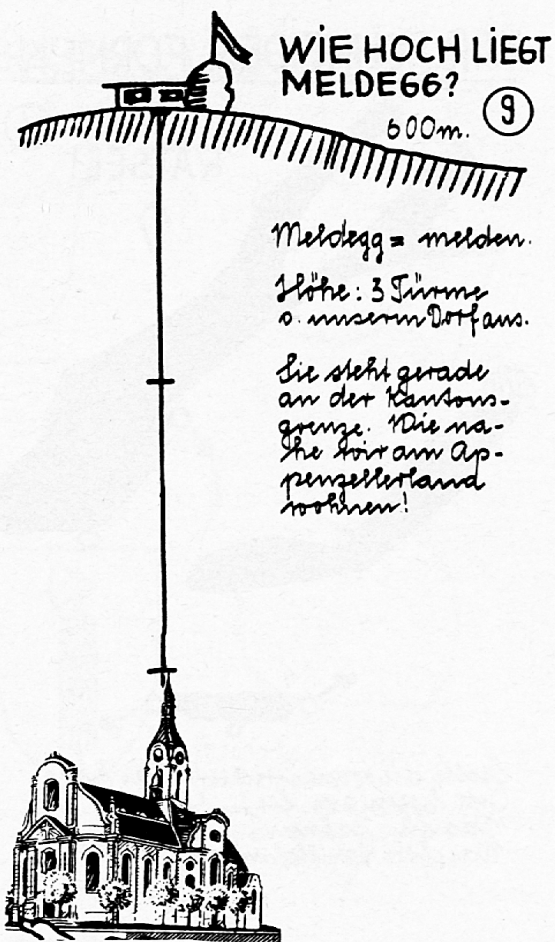 WIE HOCH LIEGT
MELDEGG?
9
600m.
Meldegg = melden.
Höhe: 3 Türme
v. unserm Dorf aus.
Sie steht gerade
an der Kantons-
grenze. Wie na-
he wir am Ap-
penzellerland
wohnen!